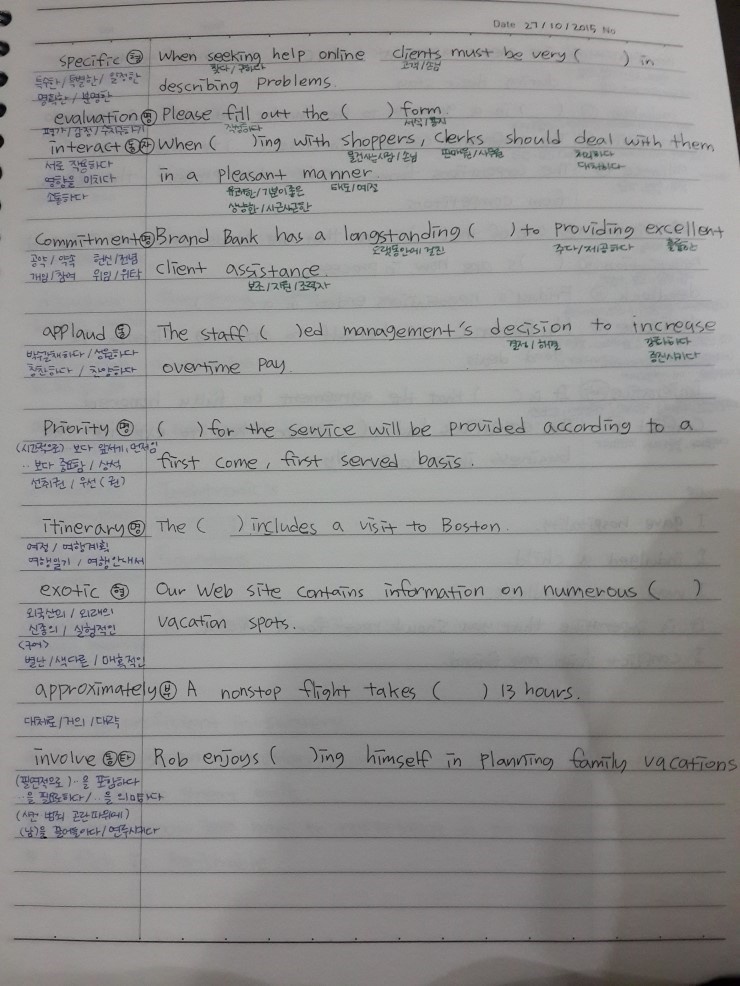 Date 27/10/2015 No
specific 형 When seeking help online clients must be very ( ) in
찾다/구하다 고객/손님
특수한/특별한/일정한 describing problems.
명확한/분명한
evaluation 명 Please fill out the ( ) form.
평가/감정/수치구하기 작성하다 서식/
interact 동 자 When ( )ing with shoppers, clerks should deal with them
서로 작용하다 물건사는사람/손님 판매원/사무원 거래하다
대처하다
영향을 미치다 in a pleasant manner.
소통하다 유쾌한/기분이좋은 태도/예절
상냥한/사근사근한
commitment 명 Brand Bank has a longstanding ( ) to providing excellent
공약/약속 헌신/전념 오랫동안에 걸친 주다/제공하다 훌륭한
개입/참여 위임/위탁 client assistance.
보조/지원/조력자
applaud 동 The staff ( )ed management's decision to increase
박수갈채하다/성원하다 결정/해결 강화하다
증진시키다
칭찬하다/찬양하다 overtime pay.
Priority 명 ( ) for the service will be provided according to a
(시간적으로) 보다 앞서기, 먼저임
‥보다 중요함/상석 first come, first served basis.
선취권/우선(권)
itinerary 명 The ( ) includes a visit to Boston.
여정/여행계획
여행일기/여행안내서
exotic 형 Our Web site contains information on numerous ( )
외국산의/외래의
신종의/실험적인 vacation spots.
<구어>
별난/색다른/매혹적인
approximately 부 A nonstop flight takes ( ) 13 hours.
대체로/거의/대략
involve 동 타 Rob enjoys ( )ing himself in planning family vacations
(필연적으로)‥을 포함하다
‥을 필요로하다/‥을 의미하다
(사건 범죄 곤란따위에)
(남)을 끌어들이다/연루시키다